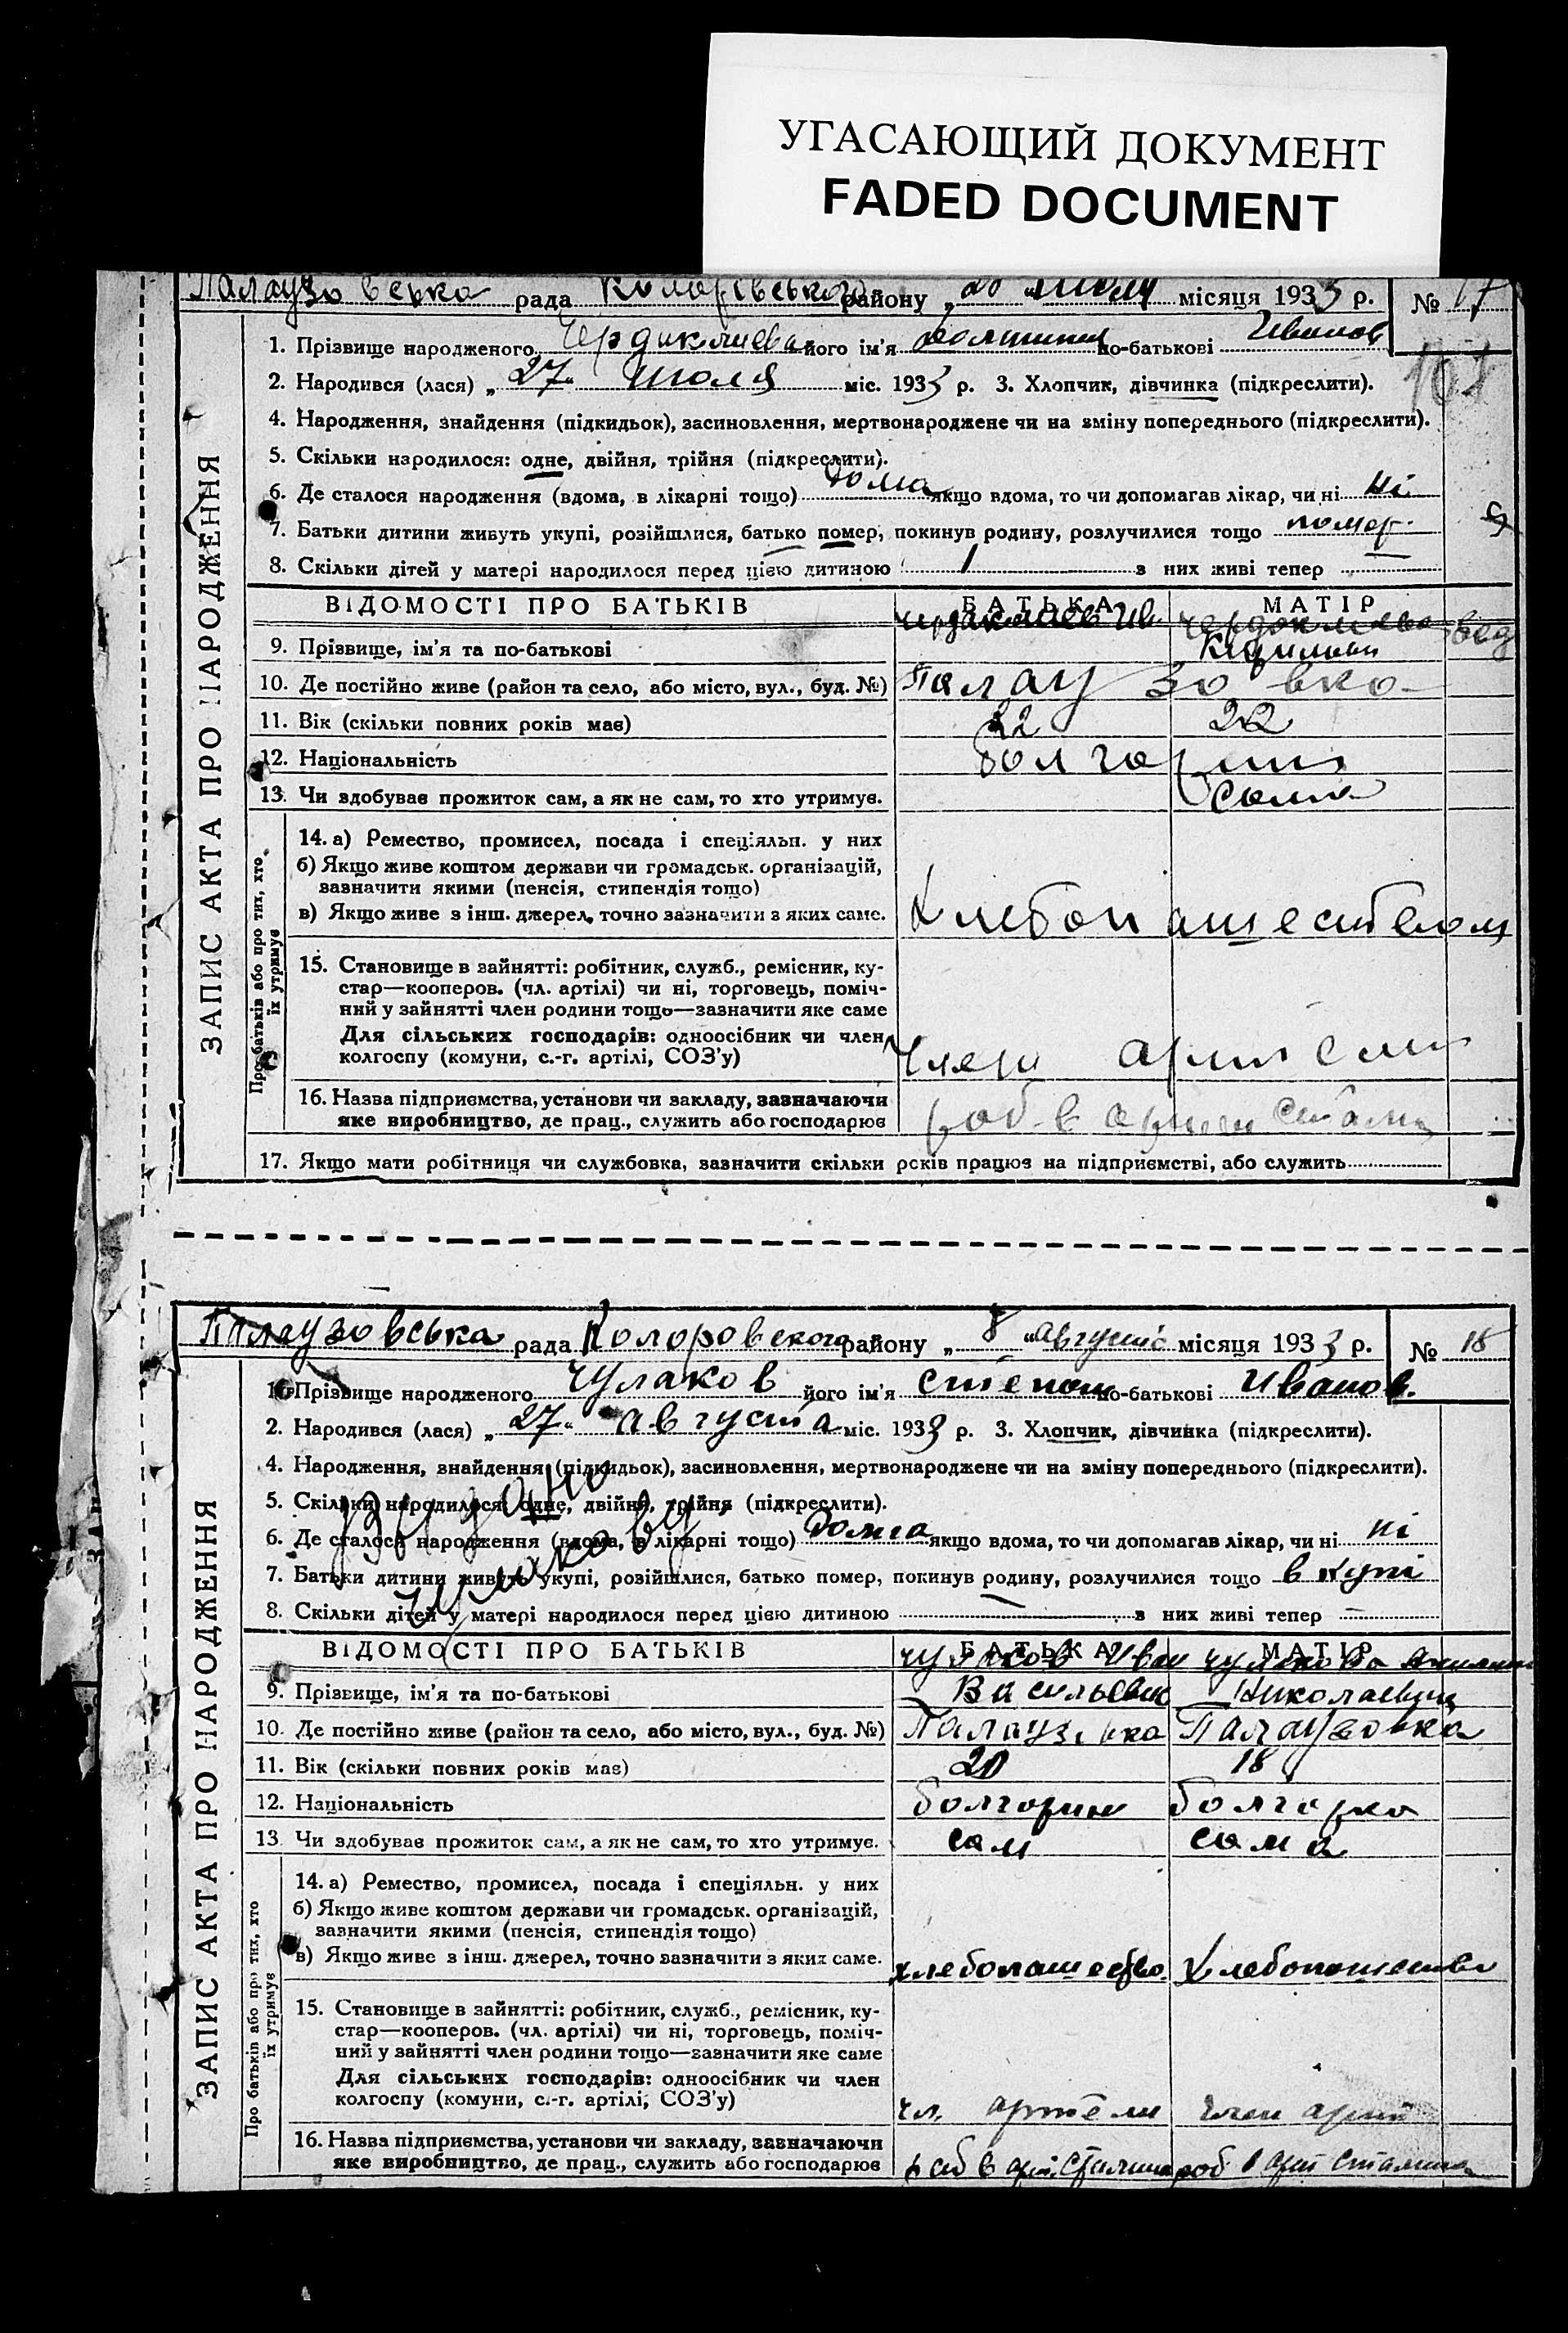 УГАСАЮЩИЙ ДОКУМЕНТ
FADED DOCUMENT
Палаузовська рада району місяця 1933 р. № 17
1. Прізвище народженого його ім'я по-батькові Иванов
2. Народився (лася) „ 27 " июля міс. 1933 р. 3. Хлопчик, дівчинка (підкреслити).
4. Народження, знайдення (підкидьок), засиновлення, мертвонароджене чи на зміну попереднього (підкреслити).
5. Скільки народилося: одне, двійня, трійня (підкреслити).
6. Де сталося народження (вдома, в лікарні тощо) дома якщо вдома, то чи допомагав лікар, чи ні ні
7. Батьки дитини живуть укупі, розійшлися, батько помер, покинув родину, розлучилися тощо помер
8. Скільки дітей у матері народилося перед цією дитиною 1 з них живі тепер —
ВІДОМОСТІ ПРО БАТЬКІВ БАТЬКА МАТІР
9. Прізвище, ім'я та по-батькові
10. Де постійно живе (район та село, або місто, вул., буд. №) Палаузовка
11. Вік (скільки повних років має) 22 22
12. Національність
13. Чи здобуває прожиток сам, а як не сам, то хто утримує. сама
ЗАПИС АКТА ПРО НАРОДЖЕННЯ
Про батьків або про тих, хто їх утримує
14. а) Ремество, промисел, посада і спеціяльн. у них
б) Якщо живе коштом держави чи громадськ. організацій,
зазначити якими (пенсія, стипендія тощо)
в) Якщо живе з інш. джерел, точно зазначити з яких саме. Хлебопашеством
15. Становище в зайнятті: робітник, служб., ремісник, ку-
стар—кооперов. (чл. артілі) чи ні, торговець, поміч-
ний у зайнятті член родини тощо—зазначити яке саме
Для сільських господарів: одноосібник чи член
колгоспу (комуни, с.-г. артілі, СОЗ'у) Член артели
16. Назва підприємства, установи чи закладу, зазначаючи
яке виробництво, де прац., служить або господарює
17. Якщо мати робітниця чи службовка, зазначити скільки років працює на підприємстві, або служить
Палаузовська рада Колоровского району „ 8 " августа місяця 1933 р. № 18
1. Прізвище народженого Чулаков його ім'я Степан по-батькові Иванов.
2. Народився (лася) „ 27 " августа міс. 1933 р. 3. Хлопчик, дівчинка (підкреслити).
4. Народження, знайдення (підкидьок), засиновлення, мертвонароджене чи на зміну попереднього (підкреслити).
5. Скільки народилося: одне, двійня, трійня (підкреслити).
6. Де сталося народження (вдома, в лікарні тощо) дома якщо вдома, то чи допомагав лікар, чи ні ні
7. Батьки дитини живуть укупі, розійшлися, батько помер, покинув родину, розлучилися тощо вкупі
8. Скільки дітей у матері народилося перед цією дитиною — з них живі тепер —
Видано
Чулакову
ВІДОМОСТІ ПРО БАТЬКІВ БАТЬКА МАТІР
Чулаков Иван Чулакова
9. Прізвище, ім'я та по-батькові Васильевич Николаевна
10. Де постійно живе (район та село, або місто, вул., буд. №) Палаузовка Палаузовка
11. Вік (скільки повних років має) 20 18
12. Національність болгарин болгарка
13. Чи здобуває прожиток сам, а як не сам, то хто утримує. сам сама
ЗАПИС АКТА ПРО НАРОДЖЕННЯ
Про батьків або про тих, хто їх утримує
14. а) Ремество, промисел, посада і спеціяльн. у них
б) Якщо живе коштом держави чи громадськ. організацій,
зазначити якими (пенсія, стипендія тощо)
в) Якщо живе з інш. джерел, точно зазначити з яких саме. хлебопашество Хлебопашество
15. Становище в зайнятті: робітник, служб., ремісник, ку-
стар—кооперов. (чл. артілі) чи ні, торговець, поміч-
ний у зайнятті член родини тощо—зазначити яке саме
Для сільських господарів: одноосібник чи член
колгоспу (комуни, с.-г. артілі, СОЗ'у) чл. артели член арт
16. Назва підприємства, установи чи закладу, зазначаючи
яке виробництво, де прац., служить або господарює раб в арт. Сталина роб в арт Сталина